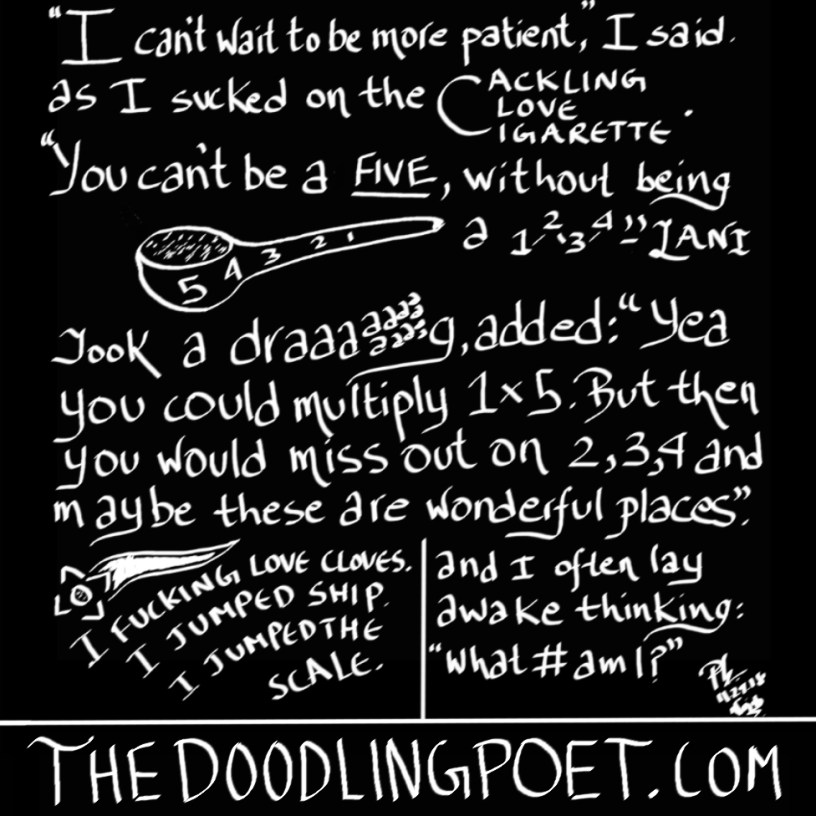 "I can't wait to be more patient," I said.
as I sucked on the CACKLING
CLOVE
CIGARETTE.
"You can't be a FIVE, without being
a 1 2 3 4" - IANI
5 4 3 2 1
Took a draaaaaaaaaag, added: "Yea
you could multiply 1x5. But then
you would miss out on 2,3,4 and
maybe these are wonderful places".
I FUCKING LOVE CLOVES.
I JUMPED SHIP.
I JUMPED THE
SCALE.
and I often lay
awake thinking:
"what # am I?"
THEDOODLINGPOET.COM